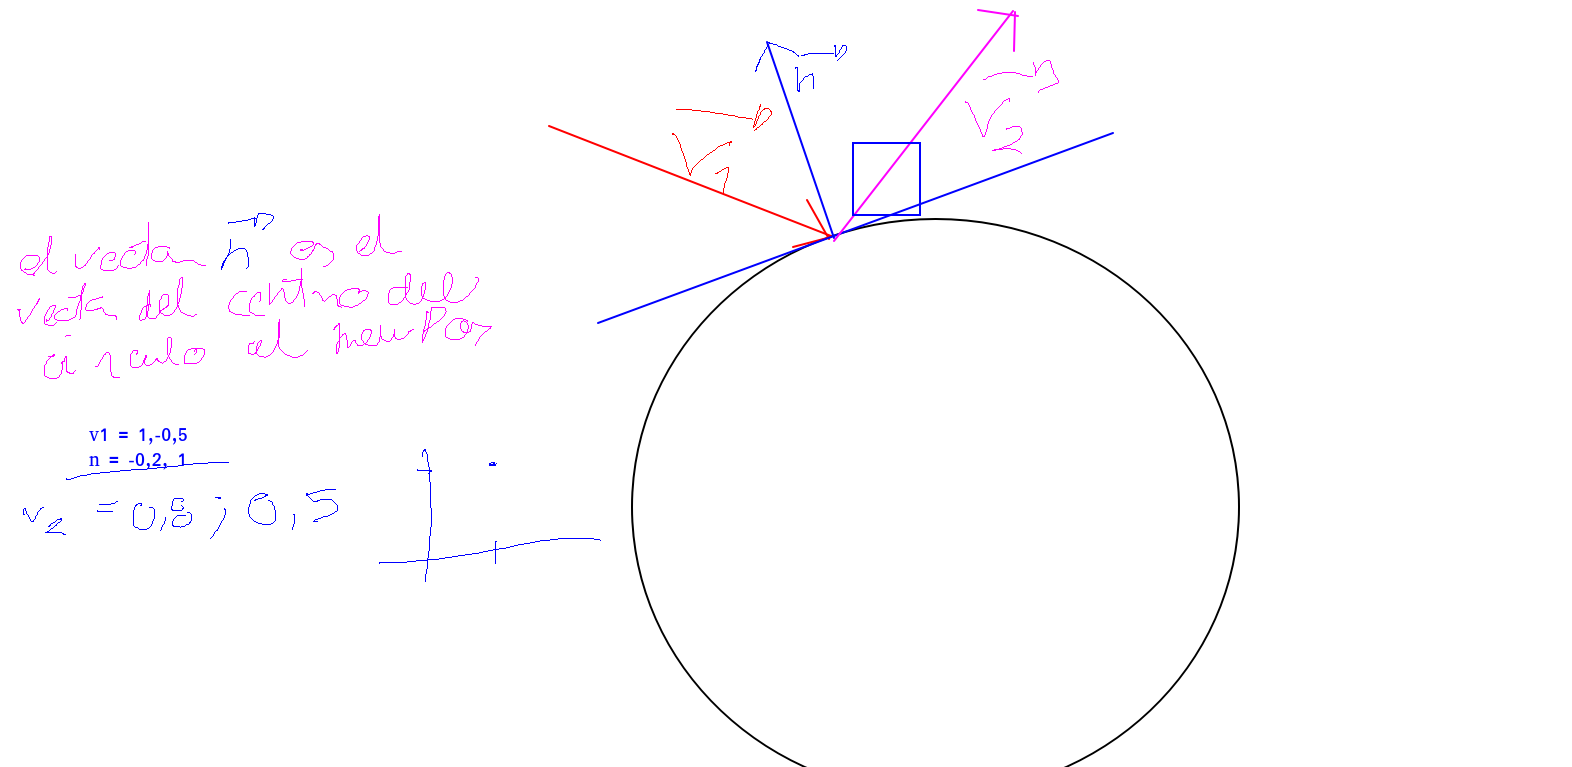 n
V₂
V₁
el vector n es el
vector del centro del
circulo al newPos
v1 = 1,-0,5
n = -0,2, 1
v₂ = 0,8 ; 0,5